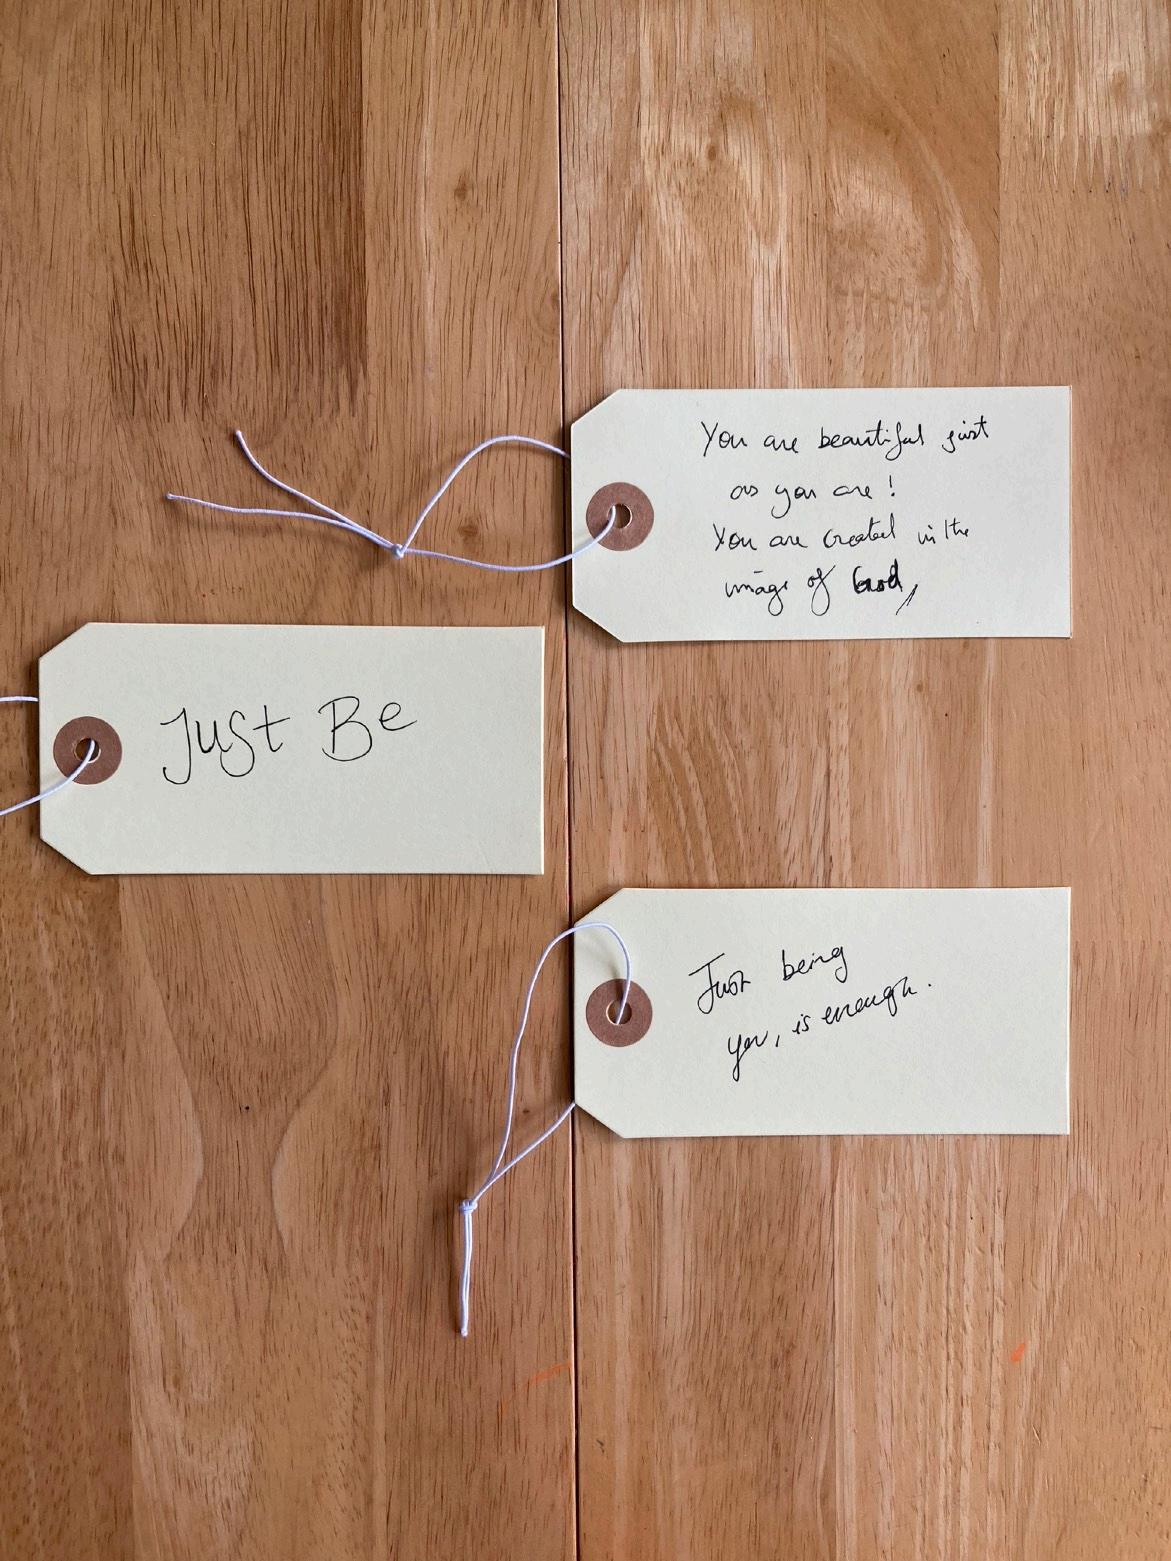 You are beautiful just
as you are!
You are created in the
image of God,
Just Be
Just being
you, is enough.